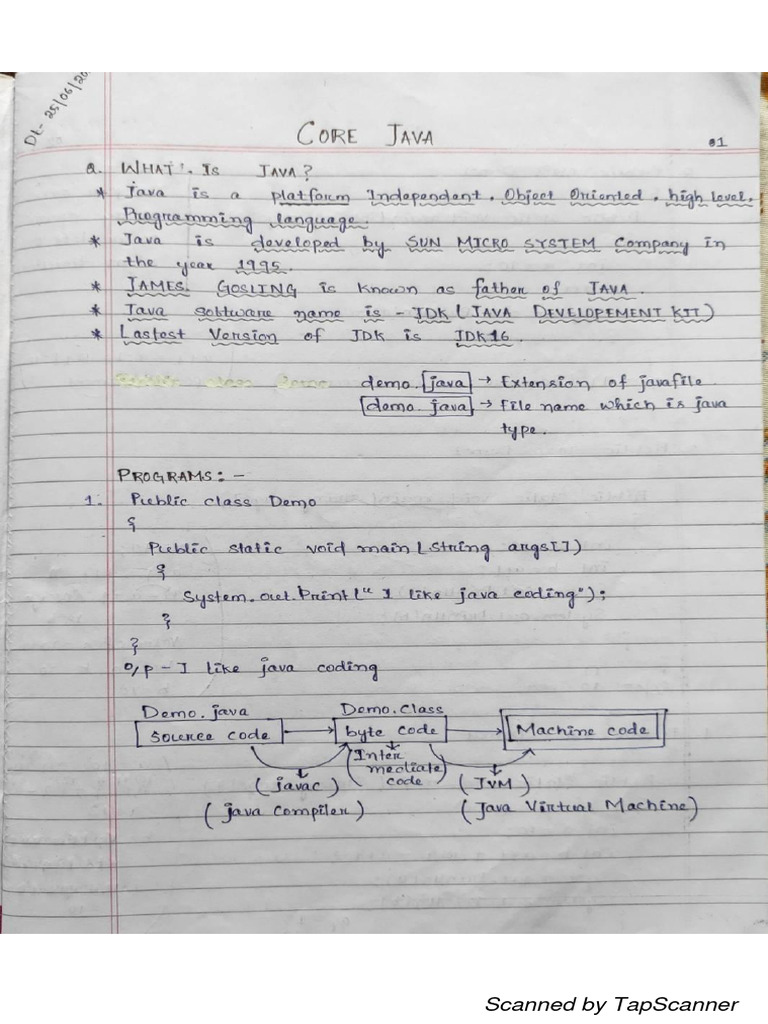 Dt- 25/06/20
CORE JAVA
01
Q. WHAT'. Is JAVA?
* Java is a platform Independent, Object Oriented, high level,
Programming language.
* Java is developed by SUN MICRO SYSTEM Company in
the year 1995.
* JAMES. GOSLING is known as father of JAVA.
* Java software name is - JDK (JAVA DEVELOPEMENT KIT)
* Lastest Version of JDK is JDK16.
demo. java → Extension of javafile.
demo. java → File name which is java
type.
PROGRAMS: -
1. Public class Demo
{
Public static void main (String args[])
{
System.out.Print(" I like java coding");
}
}
o/p - I like java coding
Demo.java Demo.class
source code → byte code → Machine code
(javac) (Inter mediate code) (JVM)
(java compiler) (Java Virtual Machine)
Scanned by TapScanner